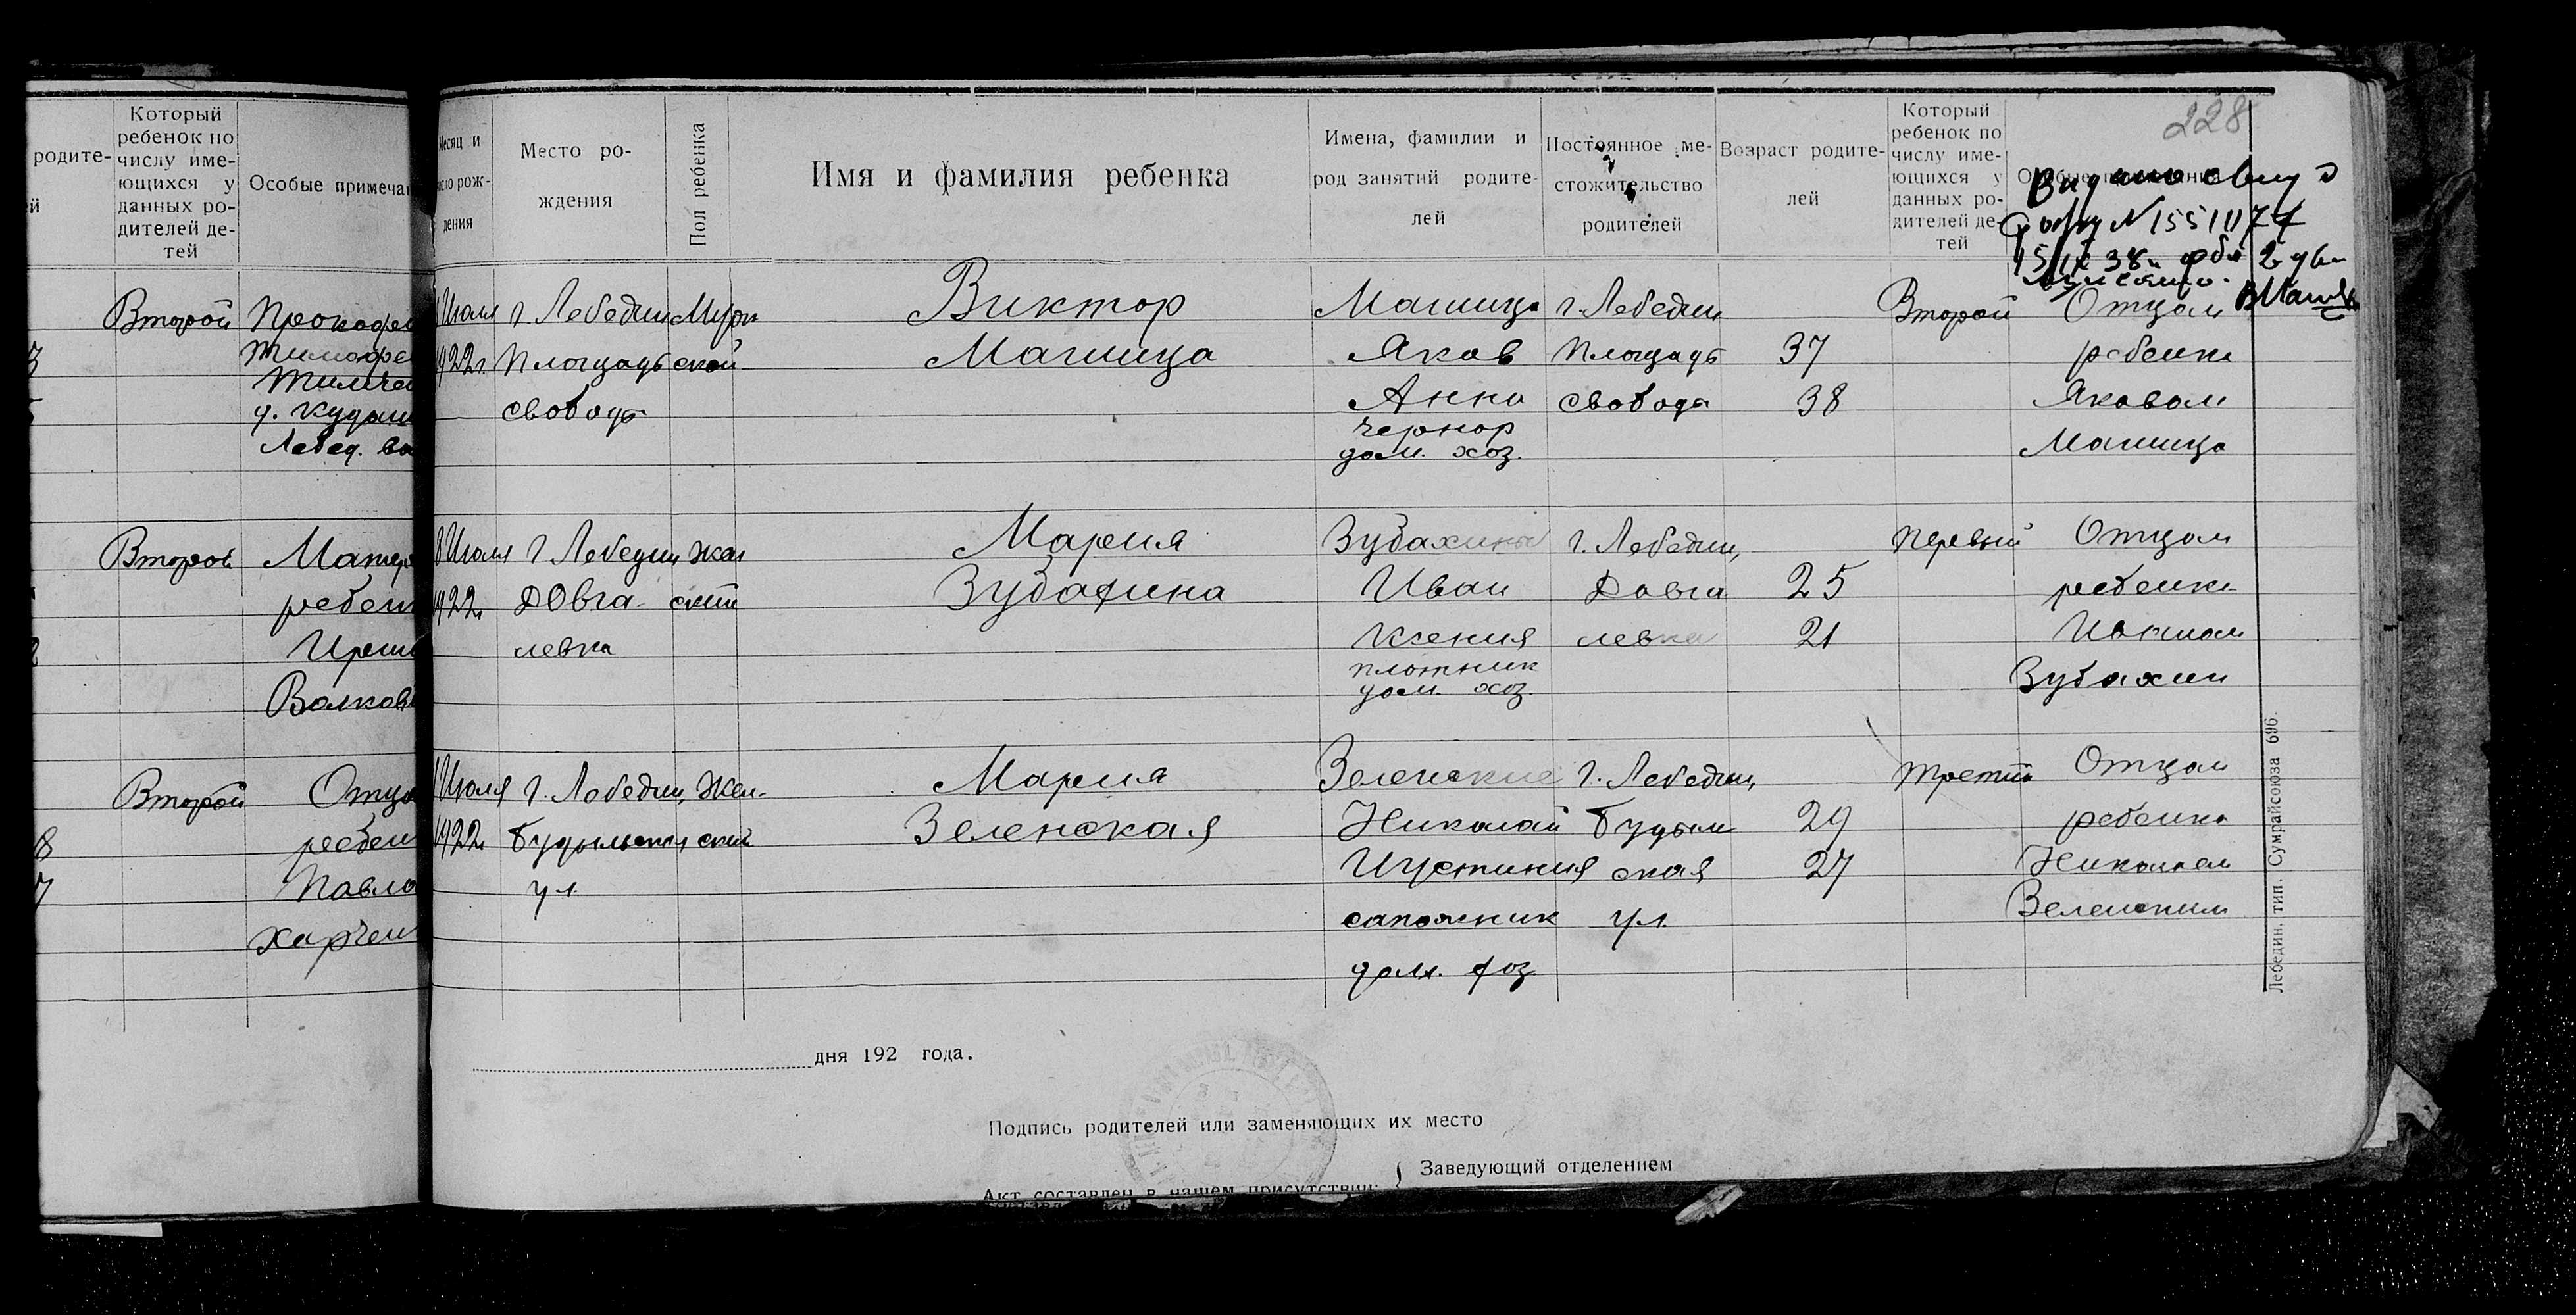 родите-
й
Который
ребенок по
числу име-
ющихся у
данных ро-
дителей де-
тей
Особые примеча
Второй
Прокофи
Тимофе
Лебед. во
Второй
Матер
ребен
Ирин
Волков
Второй
Отцо
ребен
Павло
Харчен
8
7
228
Месяц и
число рож-
дения
Место ро-
ждения
Пол ребенка
Имя и фамилия ребенка
Имена, фамилии и
род занятий родите-
лей
Постоянное ме-
стожительство
родителей
Возраст родите-
лей
Который
ребенок по
числу име-
ющихся у
данных ро-
дителей де-
тей
Июля
1922г.
г. Лебедин
Площадь
свободы
Муж
ской
Виктор
Машица
Машица
Яков
Анна
чернор
дом. хоз.
г. Лебедин
Площадь
свобода
37
38
Второй
Отцом
ребенка
Яковом
Машица
8 Июля
1922г.
г Лебедин
Довга-
левка
Жен
ский
Мария
Зубахина
Зубахины
Иван
Ксения
плотник
дом. хоз.
г. Лебедин,
Довга
левка
25
21
Первый
Отцом
ребенка
Иваном
Зубахин
Июля
1922г.
г. Лебедин,
Будыльская
ул.
Жен-
ский
Мария
Зеленская
Зеленские
Николай
Иустиния
сапожник
дом. хоз
г. Лебедин,
Будыль
ская
ул.
29
27
Третий
Отцом
ребенка
Николаем
Зеленским
Лебедин. тип. Сумрайсоюза 696.
дня 192 года.
Подпись родителей или заменяющих их место
Заведующий отделением
Акт составлен в нашем присутствии: